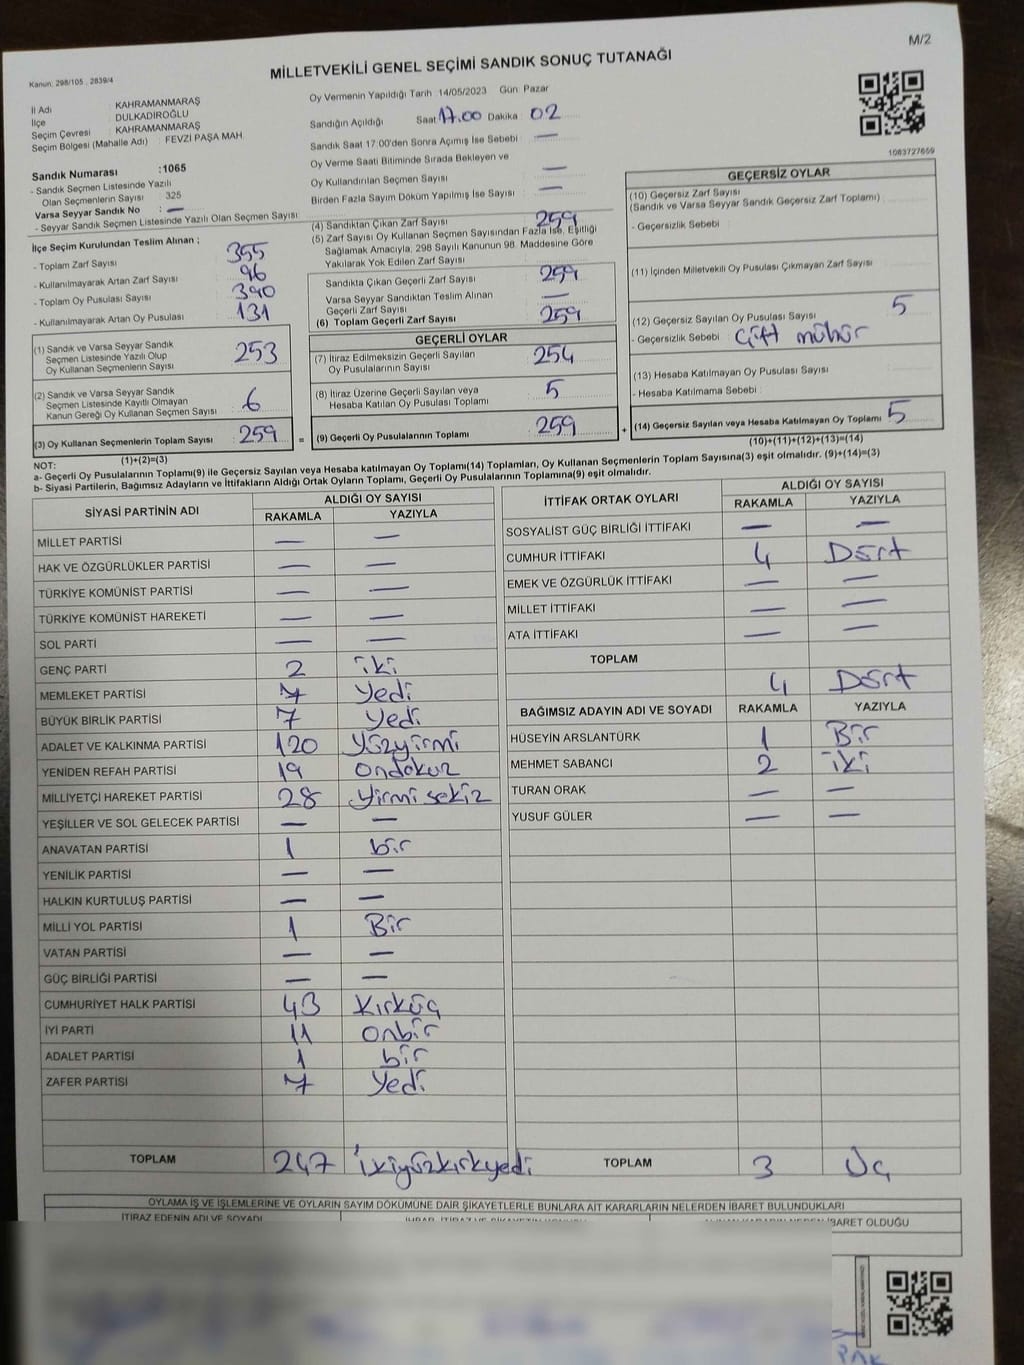 M/2
Kanun: 298/105 , 2839/4
MİLLETVEKİLİ GENEL SEÇİMİ SANDIK SONUÇ TUTANAĞI
İl Adı : KAHRAMANMARAŞ
İlçe : DULKADİROĞLU
Seçim Çevresi : KAHRAMANMARAŞ
Seçim Bölgesi (Mahalle Adı) : FEVZİ PAŞA MAH.
Sandık Numarası : 1065
- Sandık Seçmen Listesinde Yazılı
Olan Seçmenlerin Sayısı : 325
Varsa Seyyar Sandık No : —
- Seyyar Sandık Seçmen Listesinde Yazılı Olan Seçmen Sayısı :
İlçe Seçim Kurulundan Teslim Alınan ;
- Toplam Zarf Sayısı : 355
- Kullanılmayarak Artan Zarf Sayısı : 96
- Toplam Oy Pusulası Sayısı : 390
- Kullanılmayarak Artan Oy Pusulası : 131
(1) Sandık ve Varsa Seyyar Sandık
Seçmen Listesinde Yazılı Olup
Oy Kullanan Seçmenlerin Sayısı : 253
(2) Sandık ve Varsa Seyyar Sandık
Seçmen Listesinde Kayıtlı Olmayan
Kanun Gereği Oy Kullanan Seçmen Sayısı : 6
(3) Oy Kullanan Seçmenlerin Toplam Sayısı : 259
(1)+(2)=(3)
Oy Vermenin Yapıldığı Tarih 14/05/2023 Gün Pazar
Sandığın Açıldığı Saat 17.00 Dakika 02
Sandık Saat 17:00'den Sonra Açılmış İse Sebebi : —
Oy Verme Saati Bitiminde Sırada Bekleyen ve
Oy Kullandırılan Seçmen Sayısı : —
Birden Fazla Sayım Döküm Yapılmış İse Sayısı : —
(4) Sandıktan Çıkan Zarf Sayısı : 259
(5) Zarf Sayısı Oy Kullanan Seçmen Sayısından Fazla İse, Eşitliği
Sağlamak Amacıyla, 298 Sayılı Kanunun 98. Maddesine Göre
Yakılarak Yok Edilen Zarf Sayısı :
Sandıkta Çıkan Geçerli Zarf Sayısı : 259
Varsa Seyyar Sandıktan Teslim Alınan
Geçerli Zarf Sayısı : —
(6) Toplam Geçerli Zarf Sayısı : 259
GEÇERLİ OYLAR
(7) İtiraz Edilmeksizin Geçerli Sayılan
Oy Pusulalarının Sayısı : 254
(8) İtiraz Üzerine Geçerli Sayılan veya
Hesaba Katılan Oy Pusulası Toplamı : 5
= (9) Geçerli Oy Pusulalarının Toplamı : 259
1083727659
GEÇERSİZ OYLAR
(10) Geçersiz Zarf Sayısı
(Sandık ve Varsa Seyyar Sandık Geçersiz Zarf Toplamı) :
- Geçersizlik Sebebi :
(11) İçinden Milletvekili Oy Pusulası Çıkmayan Zarf Sayısı :
(12) Geçersiz Sayılan Oy Pusulası Sayısı : 5
- Geçersizlik Sebebi : Çift mühür
(13) Hesaba Katılmayan Oy Pusulası Sayısı :
- Hesaba Katılmama Sebebi :
+ (14) Geçersiz Sayılan veya Hesaba Katılmayan Oy Toplamı : 5
(10)+(11)+(12)+(13)=(14)
NOT:
a- Geçerli Oy Pusulalarının Toplamı(9) ile Geçersiz Sayılan veya Hesaba katılmayan Oy Toplamı(14) Toplamları, Oy Kullanan Seçmenlerin Toplam Sayısına(3) eşit olmalıdır. (9)+(14)=(3)
b- Siyasi Partilerin, Bağımsız Adayların ve İttifakların Aldığı Ortak Oyların Toplamı, Geçerli Oy Pusulalarının Toplamına(9) eşit olmalıdır.
SİYASİ PARTİNİN ADI ALDIĞI OY SAYISI
RAKAMLA YAZIYLA
MİLLET PARTİSİ — —
HAK VE ÖZGÜRLÜKLER PARTİSİ — —
TÜRKİYE KOMÜNİST PARTİSİ — —
TÜRKİYE KOMÜNİST HAREKETİ — —
SOL PARTİ — —
GENÇ PARTİ 2 iki
MEMLEKET PARTİSİ 7 Yedi
BÜYÜK BİRLİK PARTİSİ 7 Yedi
ADALET VE KALKINMA PARTİSİ 120 Yüzyirmi
YENİDEN REFAH PARTİSİ 19 ondokuz
MİLLİYETÇİ HAREKET PARTİSİ 28 Yirmi sekiz
YEŞİLLER VE SOL GELECEK PARTİSİ — —
ANAVATAN PARTİSİ 1 bir
YENİLİK PARTİSİ — —
HALKIN KURTULUŞ PARTİSİ — —
MİLLİ YOL PARTİSİ 1 Bir
VATAN PARTİSİ — —
GÜÇ BİRLİĞİ PARTİSİ — —
CUMHURİYET HALK PARTİSİ 43 Kırküç
İYİ PARTİ 11 onbir
ADALET PARTİSİ 1 bir
ZAFER PARTİSİ 7 Yedi
TOPLAM 247 ikiyüzkırkyedi
İTTİFAK ORTAK OYLARI ALDIĞI OY SAYISI
RAKAMLA YAZIYLA
SOSYALİST GÜÇ BİRLİĞİ İTTİFAKI — —
CUMHUR İTTİFAKI 4 Dört
EMEK VE ÖZGÜRLÜK İTTİFAKI — —
MİLLET İTTİFAKI — —
ATA İTTİFAKI — —
TOPLAM 4 Dört
BAĞIMSIZ ADAYIN ADI VE SOYADI RAKAMLA YAZIYLA
HÜSEYİN ARSLANTÜRK 1 Bir
MEHMET SABANCI 2 iki
TURAN ORAK — —
YUSUF GÜLER — —
TOPLAM 3 Üç
OYLAMA İŞ VE İŞLEMLERİNE VE OYLARIN SAYIM DÖKÜMÜNE DAİR ŞİKAYETLERLE BUNLARA AİT KARARLARIN NELERDEN İBARET BULUNDUKLARI
İTİRAZ EDENİN ADI VE SOYADI
İBARET OLDUĞU